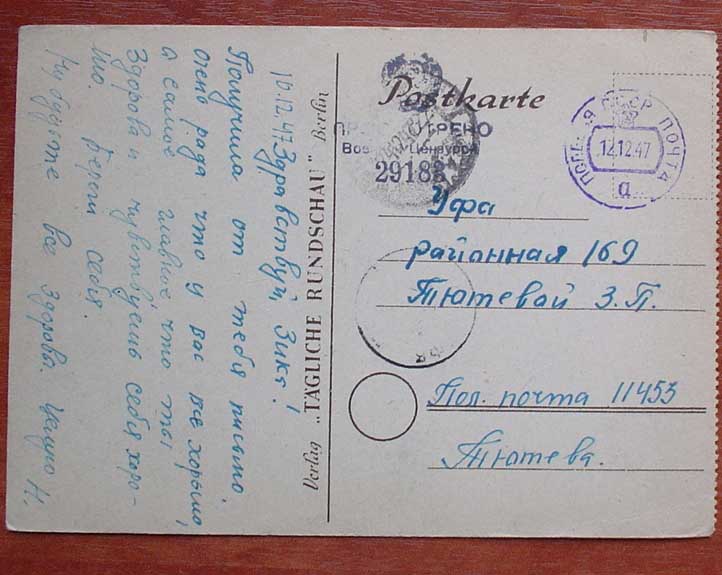 10.12.47
Здравствуй, Зика!
Получила от тебя письмо,
очень рада что у вас все хорошо,
а самое главное что ты
здорова и чувствуешь себя хоро-
шо. Береги себя.
Ну будьте все здорова. Целую Н.
Verlag „TÄGLICHE RUNDSCHAU" Berlin
Postkarte
ПРОСМОТРЕНО
Военной Цензурой
29182
ПОЛЕВАЯ ПОЧТА
12.12.47
а
Уфа
районная 169
Тютевой З.П.
Пол. почта 11453
Тютева.